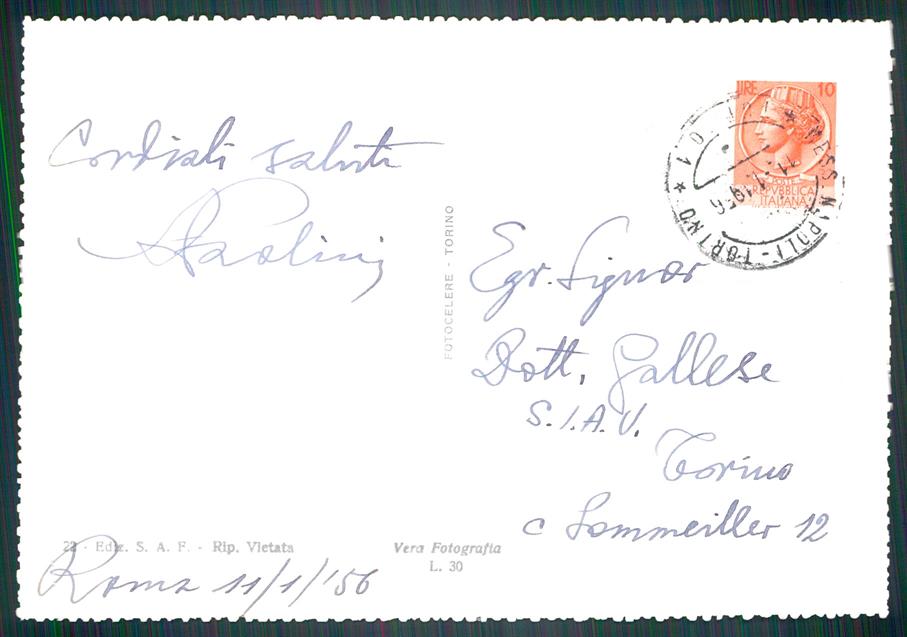 Cordiali saluti
Paolini
FOTOCELERE - TORINO
LIRE 10
POSTE
REPVBBLICA
ITALIANA
MESS. NAPOLI - TORINO
11.1.1956
Egr. Signor
Dott. Gallese
S.I.A.V.
Torino
c Sommeiller 12
22 - Ediz. S. A. F. - Rip. Vietata
Vera Fotografia
L. 30
Roma 11/1/'56